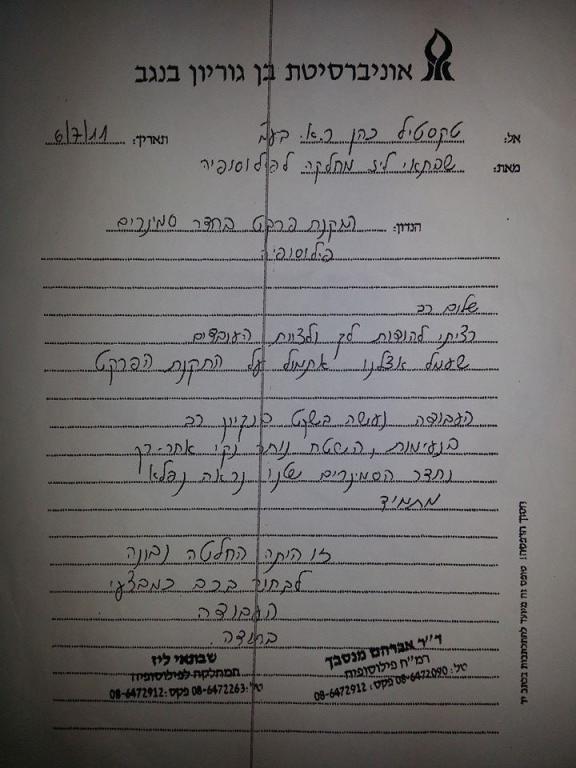 אוניברסיטת בן גוריון בנגב
אל: טקסטיל כהן ר.א. בע"מ תאריך: 6/7/11
מאת: שבתאי ליז מחלקה לפילוסופיה
הנדון: התקנת פרקט בחדר סמינרים
פילוסופיה
שלום רב
רציתי להודות לך ולצוות העובדים
שעמל אצלנו אתמול על התקנת הפרקט
העבודה נעשה בשקט בנקיון רב
בנעימות, השטח נותר נקי אחר-כך
וחדר הסמינרים שלנו נראה נפלא
מתמיד
זו היתה החלטה נבונה
לבחור בכם כמבצעי
העבודה
בתודה.
ד"ר אברהם מנסבך
רמ"ח פילוסופיה
טל: 08-6472090 פקס: 08-6472912
שבתאי ליז
המחלקה לפילוסופיה
טל: 08-6472263 פקס: 08-6472912
חסוך הדפסה! טופס זה מיועד להתכתבות בכתב יד